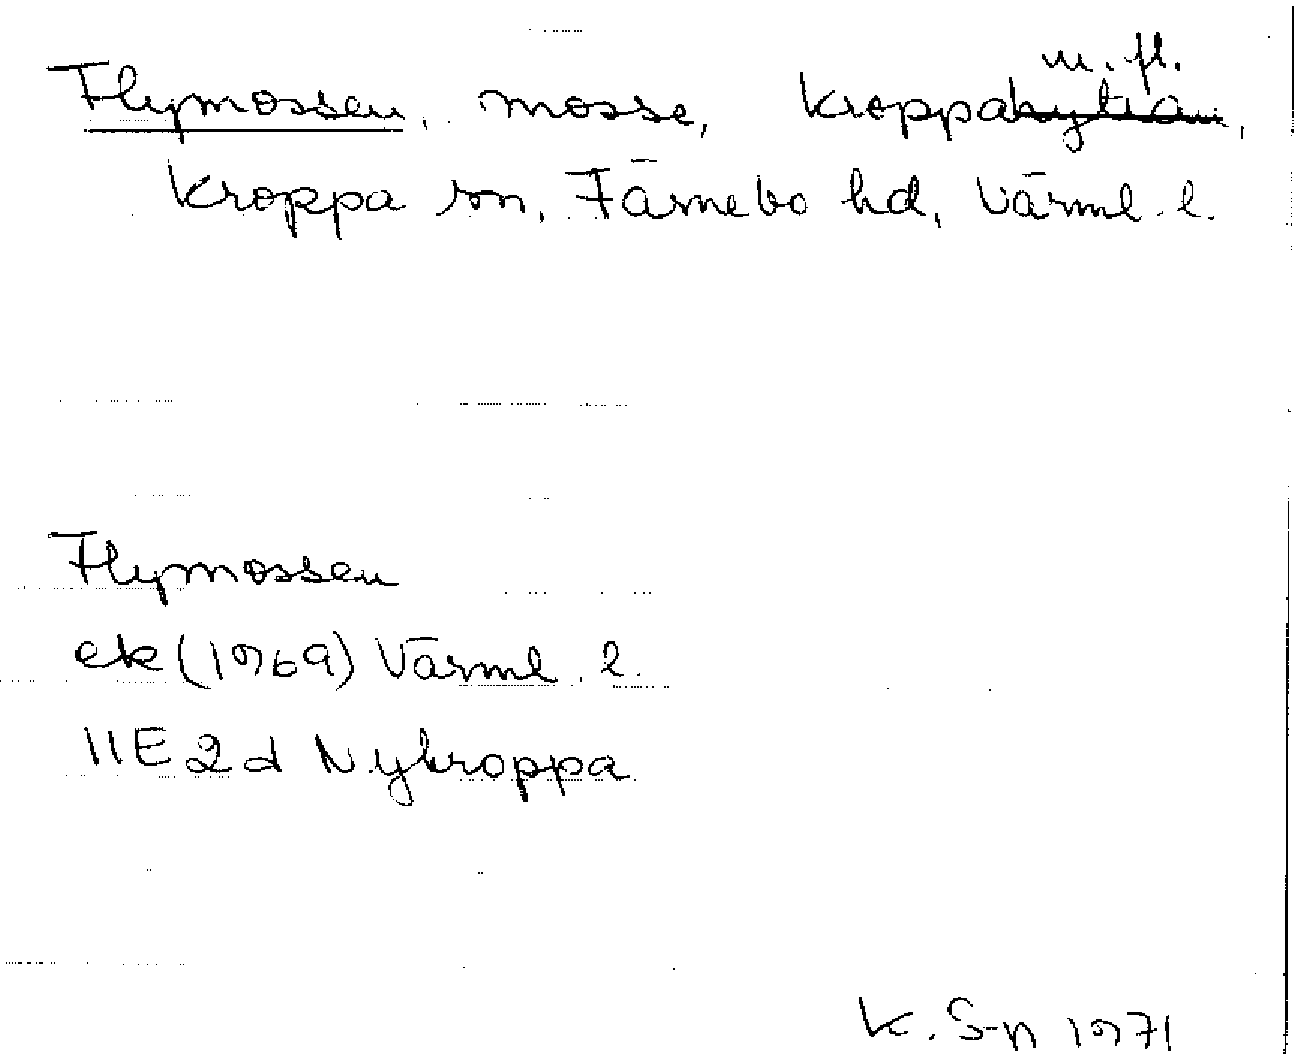 m. fl.
Flymossen, mosse, Kroppahyttan,
Kroppa sn, Färnebo hd, Värml. l.
Flymossen
ek (1969) Värml. l.
11E 2d Nykroppa
K. S-n 1971